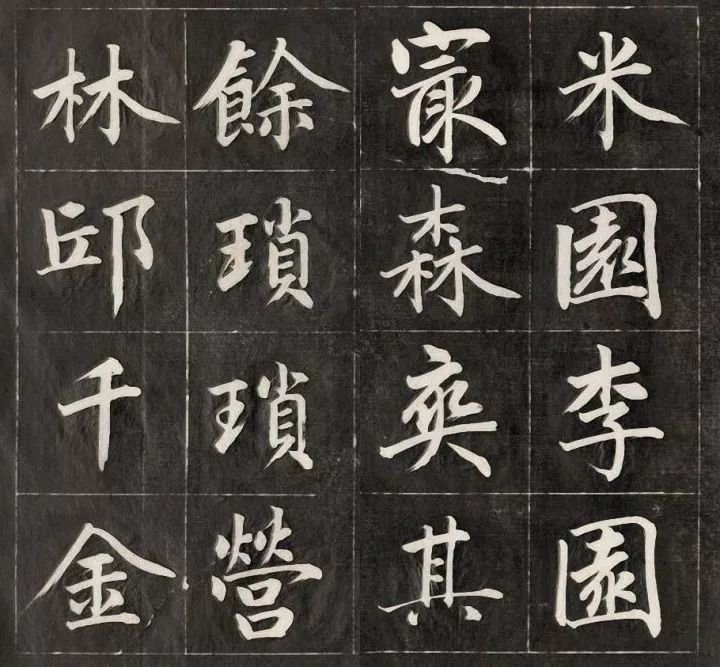 米園李園
㝡森奕其
餘瑣瑣營
林邱千金